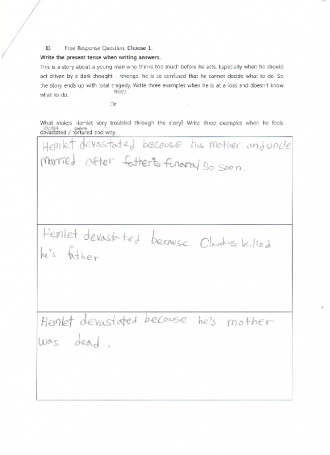 III. Free Response Question. Choose 1.
Write the present tense when writing answers.
This is a story about a young man who thinks too much before he acts. Especially when he should
act driven by a dark thought - revenge, he is so confused that he cannot decide what to do. So
the story ends up with total tragedy. Write three examples when he is at a loss and doesn't know
what to do.
Or
What makes Hamlet very troubled through the story? Write three examples when he feels
devastated / tortured and why.
Hemlet devastated because his mother and uncle
married after father's funeral so soon.
Hemlet devastated because Claudius killed
he's father
Hemlet devastated because he's mother
was dead.